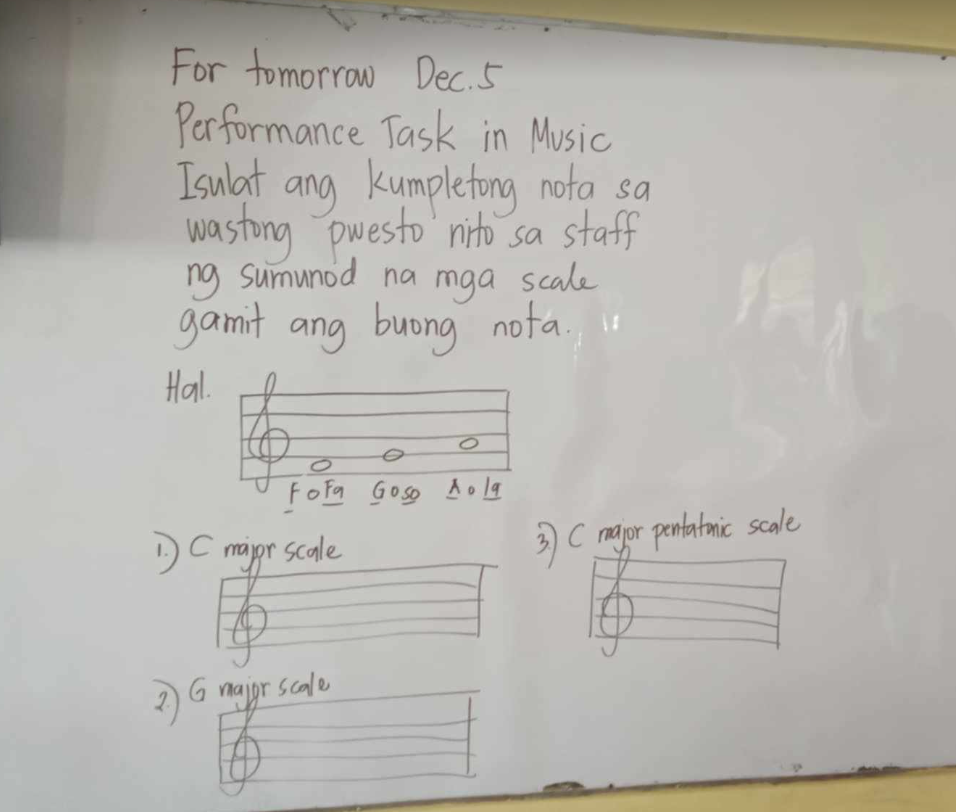 For tomorrow Dec. 5
Performance Task in Music
Isulat ang kumpletong nota sa
wastong pwesto nito sa staff
ng sumunod na mga scale
gamit ang buong nota.
Hal.
F o Fa G o so A o la
1.) C major scale
2.) G major scale
3.) C major pentatonic scale